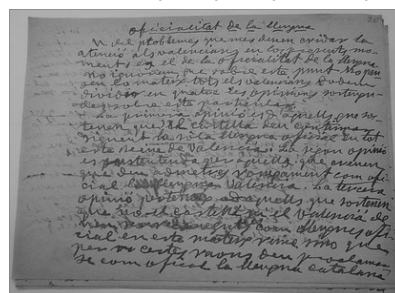 oficialitat de la llengua
U del problemes que mes deuen cridar la
atenció als valencians en los presents mo-
ments es el de la oficialitat de la llengua
No
en lo mateix tots els valencians. Poden
dividir en quatre les opinions
resoldre este particular.
La primera opinió es d'aquells que sos-
tenen que el castellà deu continuar
sient la sola llengua oficial en tot
este Reine de Valencia. La segon opinió
es sostentada per aquells que creuen
que deu admetres com ofi-
cial la llengua Valenciana. La tercera
opinió pertenax ad aquells que sostenen
que no el castellà ni el Valencià de-
uen com llengües ofi-
cial en este mateix Reine sino que
per certes deu proclamar-
se com oficial la llengua catalana